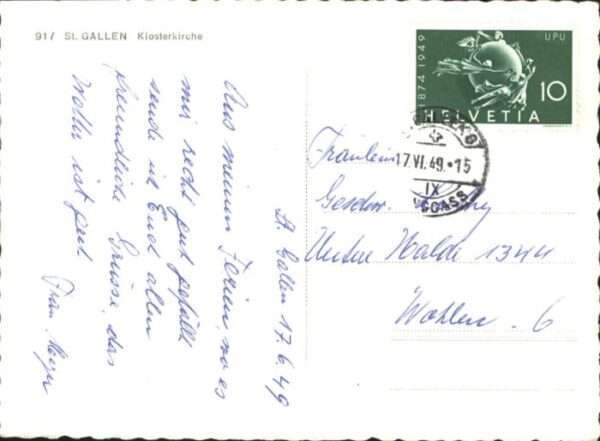 917 St. GALLEN Klosterkirche
1874-1949
UPU
HELVETIA 10
17.VI.49.-15
IX
St. Gallen 17.6.49
Aus meinen Ferien, wo es
mir recht gut gefällt
sende ich Euch allen
freundliche Grüsse, das
Wetter ist gut.
Frau. Meyer
Fräulein
Geschw.
Untere Halde 1344
Wohlen. 6